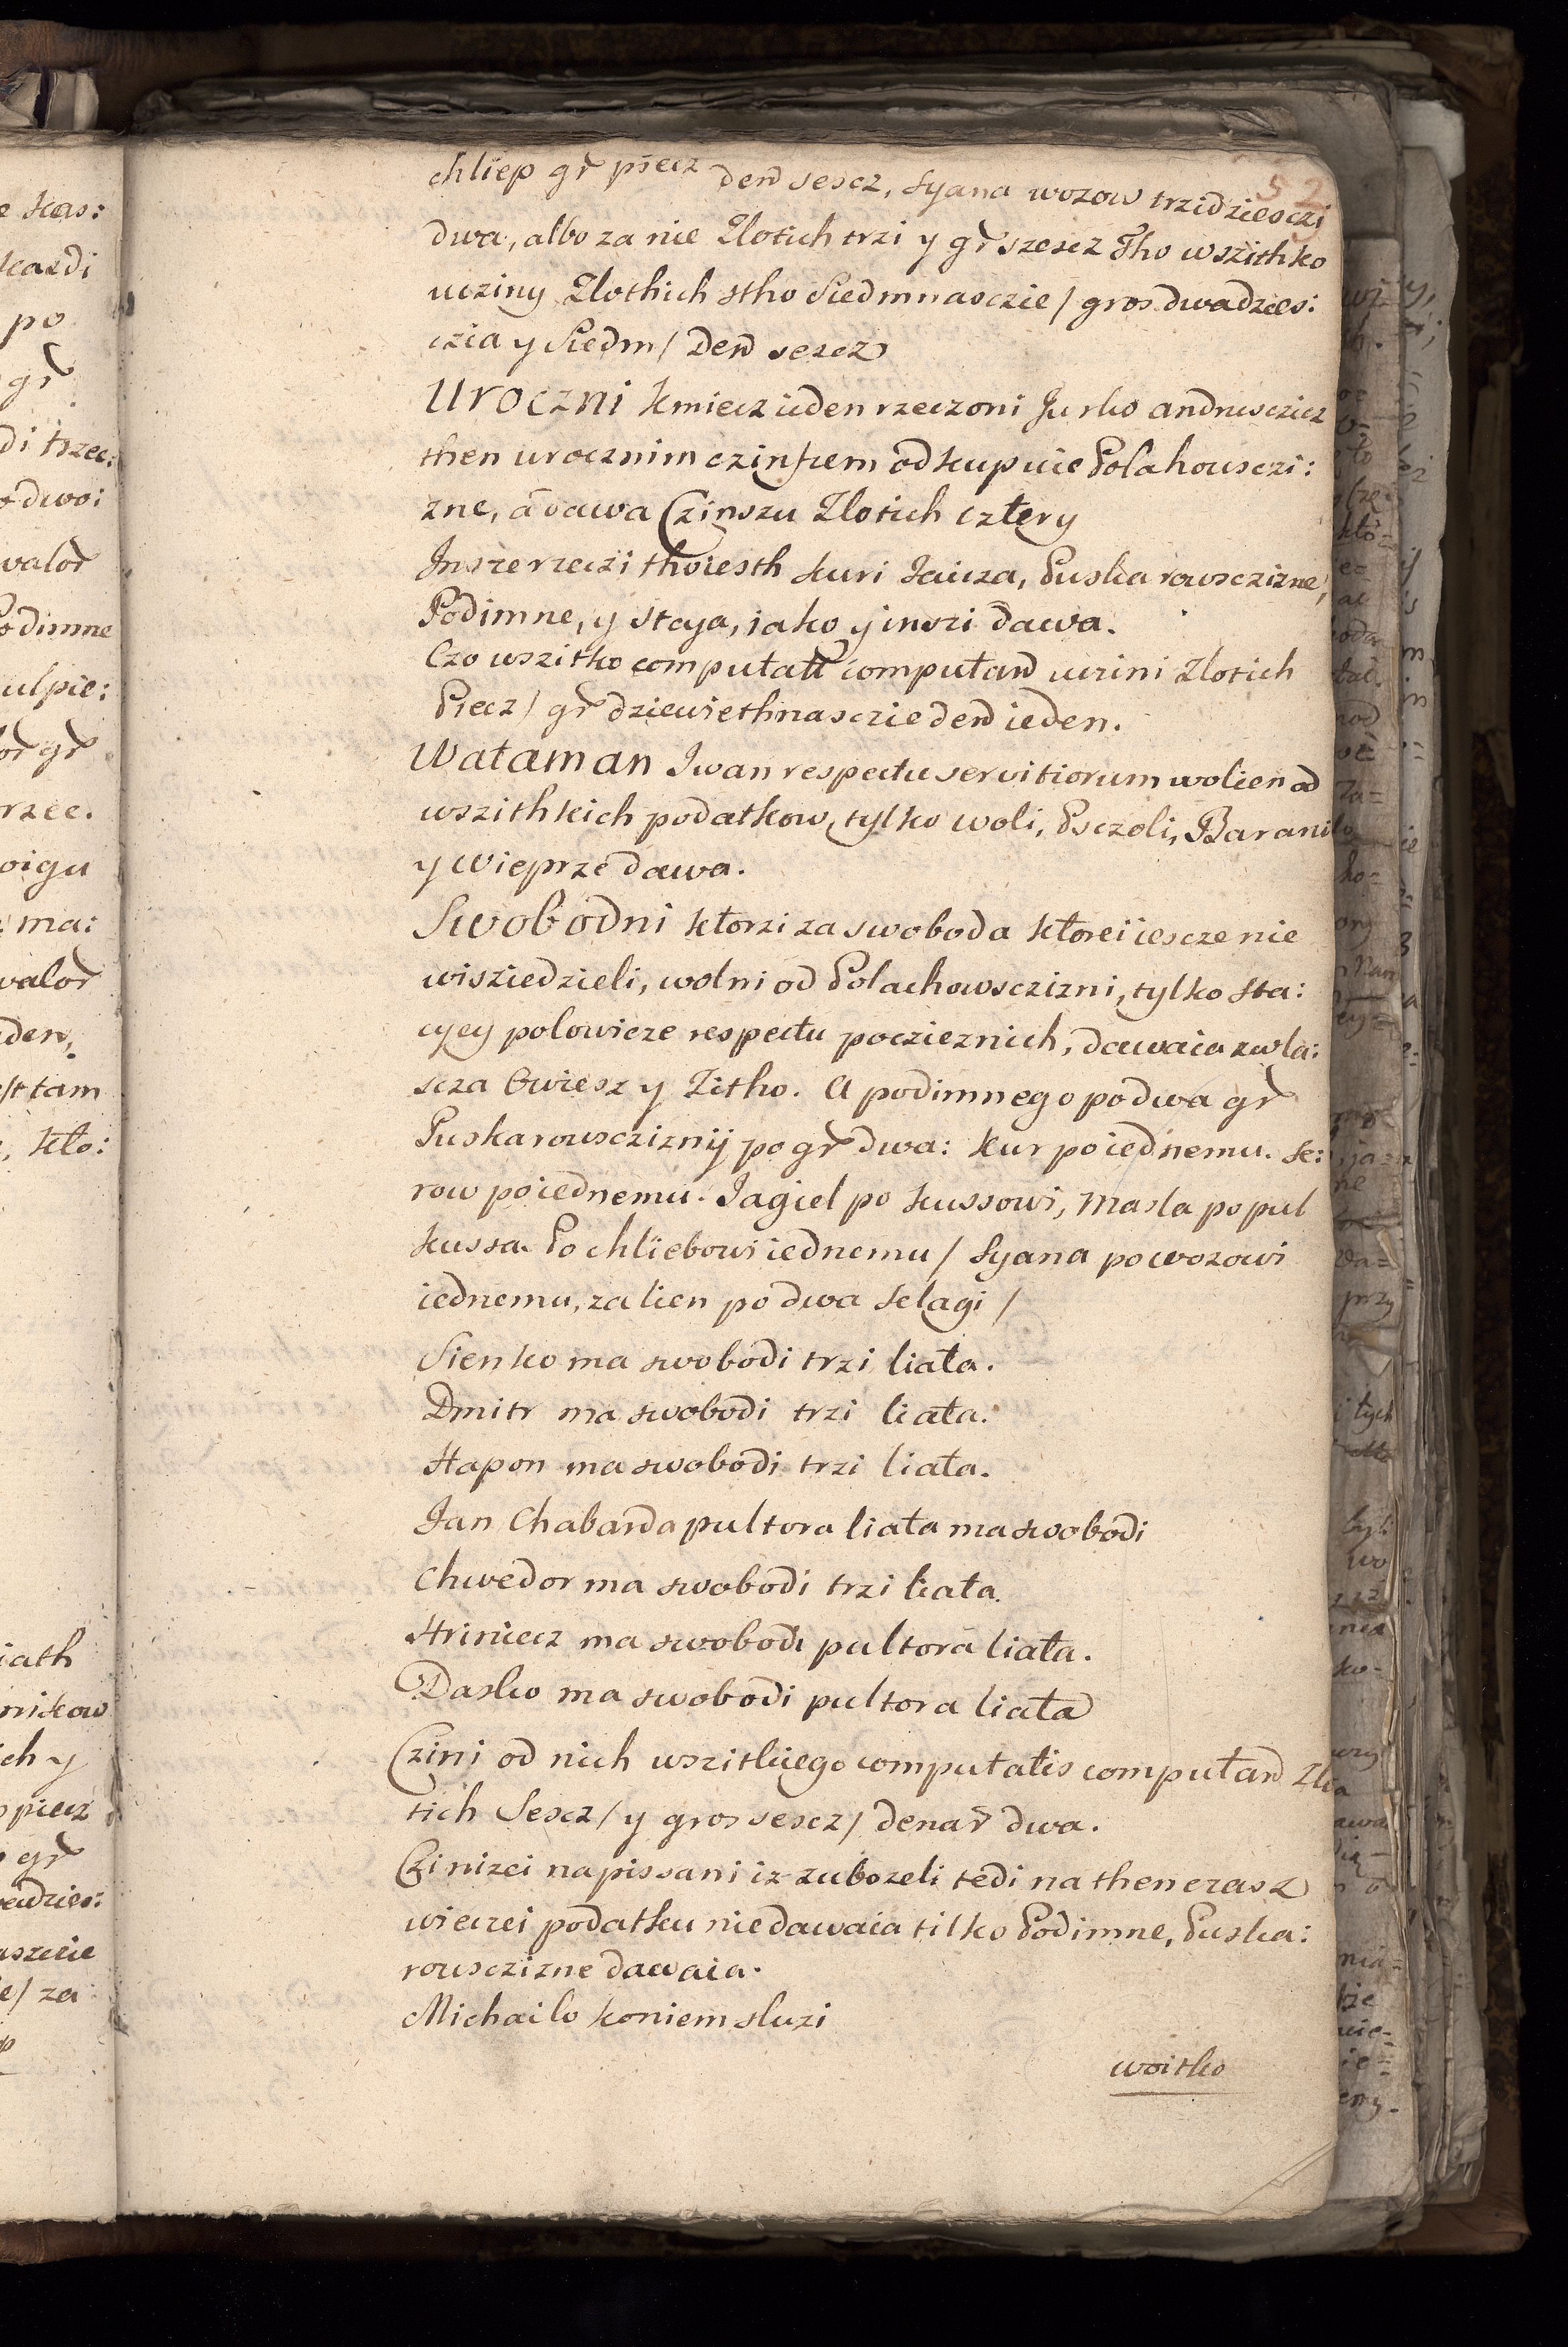 52
chliep gr̃ piecz den̄ sescz, Syana wozow trzidziesczi
dwa, albo za nie Zlotich trzi y gr̃ szescz Tho wszithko
ucziny Zlothich stho Siedmnasczie / gros dwadzies:
czia y Siedm / Den̄ sescz
Uroczni kmiecz ieden rzeczoni Jurko andrusczicz
then urocznim czinszem odkupuie Polahowsczi:
zne, a dawa Czinszu Zlotich cztery
Insze rzeczi tho iesth kuri Jaicza, Puskarowsczizne,
Podimne, y Stcya, iako y inszi dawa.
Czo wszitko computatt̃ computan̄ uczini Zlotich
Piecz / gr̃ dziewiethnasczie den̄ ieden.
Wataman Iwan respectu servitiorum wolien od
wszithkich podatkow, tylko woli, Psczoli, Barani
y Wieprze dawa.
Swobodni ktorzi za swoboda ktorei iescze nie
wisziedzieli, wolni od Polachowsczizni, tylko sta:
cyey polowicze respectu poczieznich, dawaia zwla:
scza Owiesz y Zitho. A podimnego po dwa gr̃
Puskarowscziznij po gr̃ dwa: kur po iednemu. se:
row po iednemu. Jagiel po kussowi, Masla po pul
kussa. Po chliebowi iednemu / Syana po wozowi
iednemu, za lien po dwa selagi /
Sienko ma swobodi trzi liata.
Dmitr ma swobodi trzi liata.
Hapon ma swobodi trzi liata.
Jan Chabarda pultora liata ma swobodi
Chwedor ma swobodi trzi liata.
Hriniecz ma swobodi pultora liata.
Dasko ma swobodi pultora liata
Czini od nich wszitkiego computatis computan̄ Zlo
tich Sescz / y gros sescz / denar̃ dwa.
Czi nizei napissani iz zubozeli tedi na then czasz
wieczei podatku nie dawaia tilko Podimne, Puska:
rowsczizne dawaia.
Michailo koniem sluzi
woitko